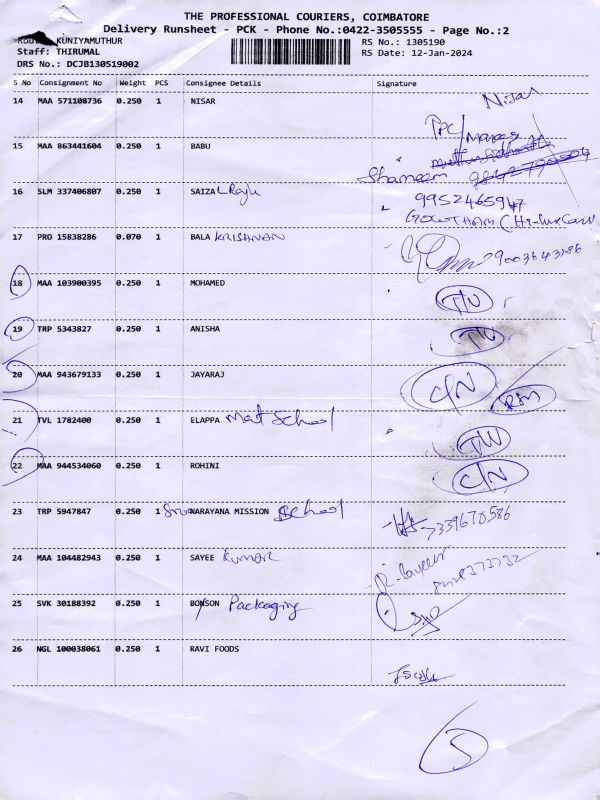 THE PROFESSIONAL COURIERS, COIMBATORE
Delivery Runsheet - PCK - Phone No.:0422-3505555 - Page No.:2
KUNIYAMUTHUR RS No.: 1305190
Staff: THIRUMAL RS Date: 12-Jan-2024
DRS No.: DCJB130519002
S No Consignment No Weight PCS Consignee Details Signature
14 MAA 571108736 0.250 1 NISAR Nisar
TPC/
15 MAA 863441604 0.250 1 BABU
Shameem
16 SLM 337406807 0.250 1 SAIZAL 9952465947
GOWTHAM
17 PRO 15838286 0.070 1 BALA KRISHNAN
18 MAA 103900395 0.250 1 MOHAMED
19 TRP 5343827 0.250 1 ANISHA
20 MAA 943679133 0.250 1 JAYARAJ C/N
21 TVL 1782400 0.250 1 ELAPPA Mat School
22 MAA 944534060 0.250 1 ROHINI C/N
23 TRP 5947847 0.250 1 Sree NARAYANA MISSION School
24 MAA 104482943 0.250 1 SAYEE Kumar
25 SVK 30188392 0.250 1 BONSON Packaging
26 NGL 100038061 0.250 1 RAVI FOODS
5